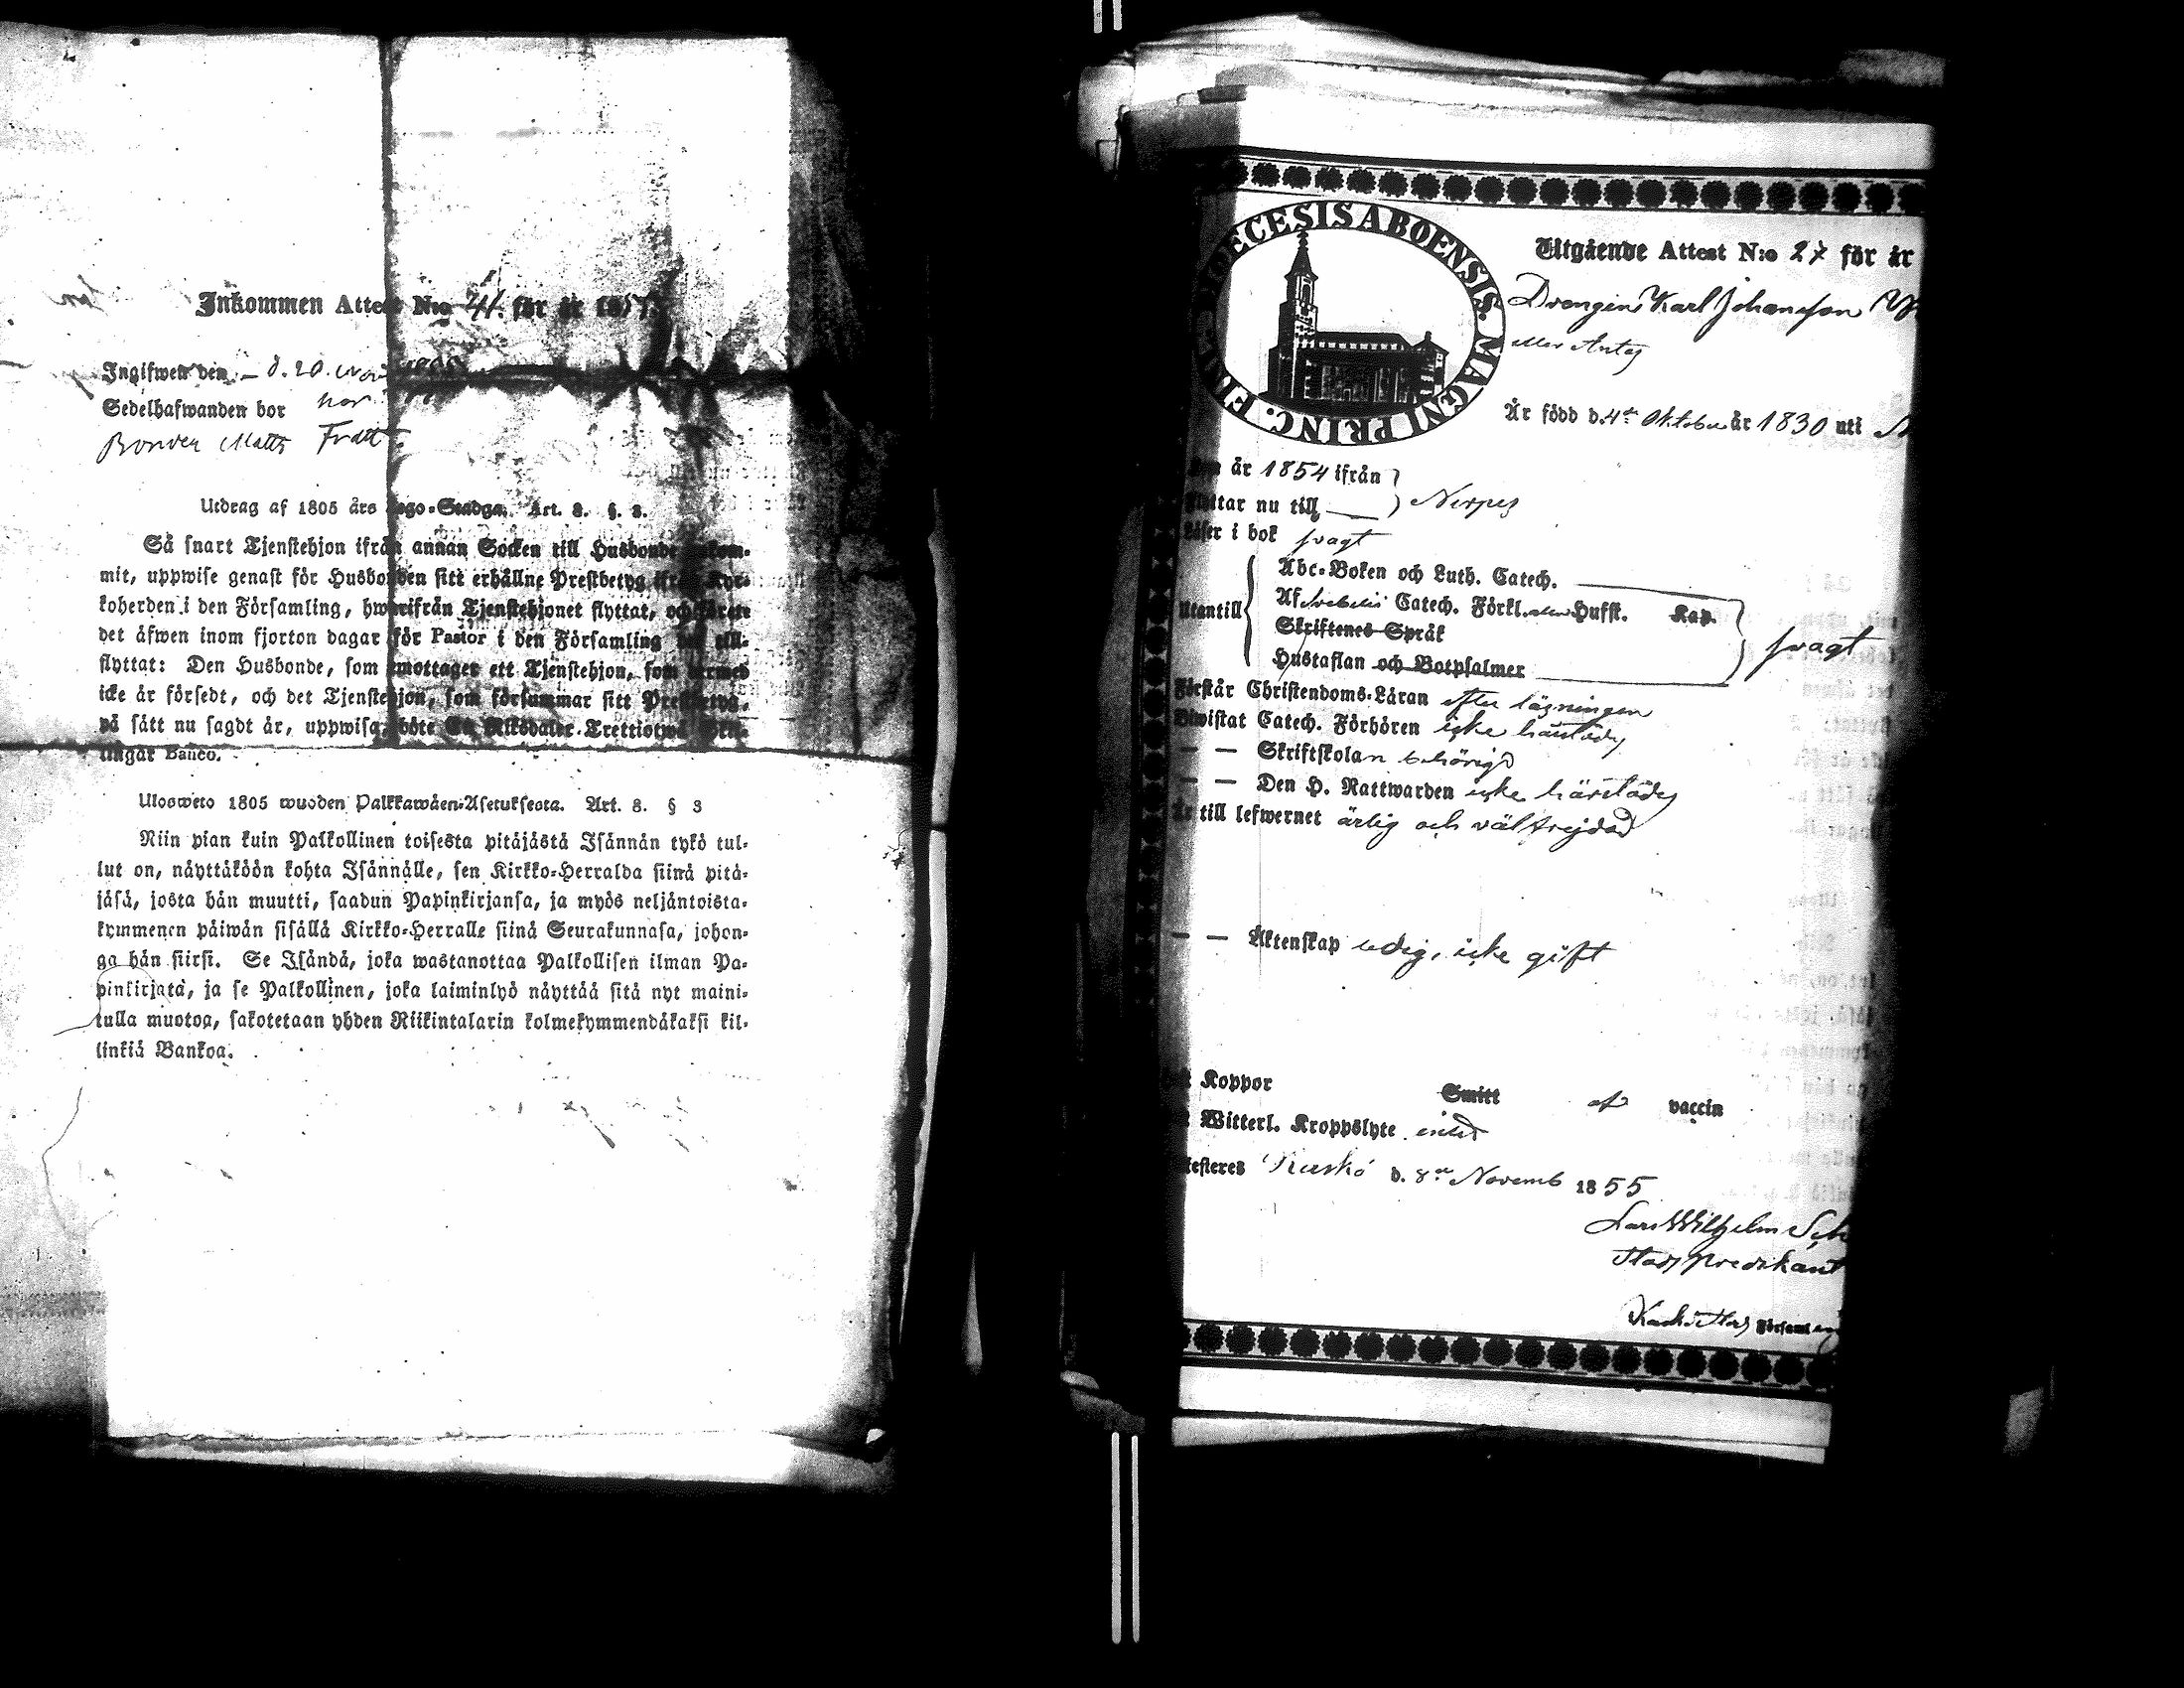 Inkommen Attest N:o 44. för år 185
Ingifwen den d. 20. Nov 1855
Sedelhafwanden bor hos
Bonden Matts Fratt
Utdrag af 1805 års Lego-Stadga. Art. 8. §. 3.
Så snart Tjenstehjon ifrån annan Socken till Husbonde ankom-
mit, uppwise genast för Husbonden sitt erhållne Prestbetyg ifrån Kyr-
koherden i den Församling, hwarifrån Tjenstehjonet flyttat, och förete
det äfwen inom fjorton dagar för Pastor i den Församling dit till-
flyttat: Den Husbonde, som emottager ett Tjenstehjon, som dermed
icke är försedt, och det Tjenstehjon, som försummar sitt Prestbetyg,
på sätt nu sagdt är, uppwisa, böte En Riksdaler Trettiotwå Skil-
lingar Banco.
Ulosweto 1805 wuoden Palkkawäen-Asetuksesta. Art. 8. § 3
Niin pian kuin Palkollinen toisesta pitäjästä Isännän tykö tul-
lut on, näyttäköön kohta Isännälle, sen Kirkko-Herralda siinä pitä-
jäsä, josta hän muutti, saadun Papinkirjansa, ja myös neljäntoista-
kymmenen päiwän sisällä Kirkko-Herralle siinä Seurakunnasa, johon-
ga hän siirsi. Se Isändä, joka wastanottaa Palkollisen ilman Pa-
pinkirjata, ja se Palkollinen, joka laiminlyö näyttää sitä nyt maini-
tulla muotoa, sakotetaan yhden Riikintalarin kolmekymmendäkaksi kil-
linkiä Bankoa.
DIOECESIS ABOENSIS. MAGNI PRINC. FINL
Utgående Attest N:o 27 för år
Drengen Karl Johansson
eller Antas
År född d. 4de Oktober år 1830 uti
år 1854 ifrån
Flyttar nu till Nerpes
Läser i bok svagt
Utantill
Abc-Boken och Luth. Catech.
Af Svebelii Catech. Förkl. Husft. Kap.
Skriftenes Språk
Hustaflan och Botpsalmer
svagt
Förstår Christendoms-Läran efter läsningen
Biwistat Catech. Förhören icke härstädes
— — Skriftskolan behörigt
— — Den H. Nattwarden icke härstädes
Är till lefwernet ärlig och välfrejdad
— — Äktenskap ledig, icke gift
Koppor Smitt af vaccin
Witterl. Kroppslyte intet
Kaskö d. 8de Novemb 1855
Lars Wilhelm
Stadspredikant
Kaskö Stads Församling